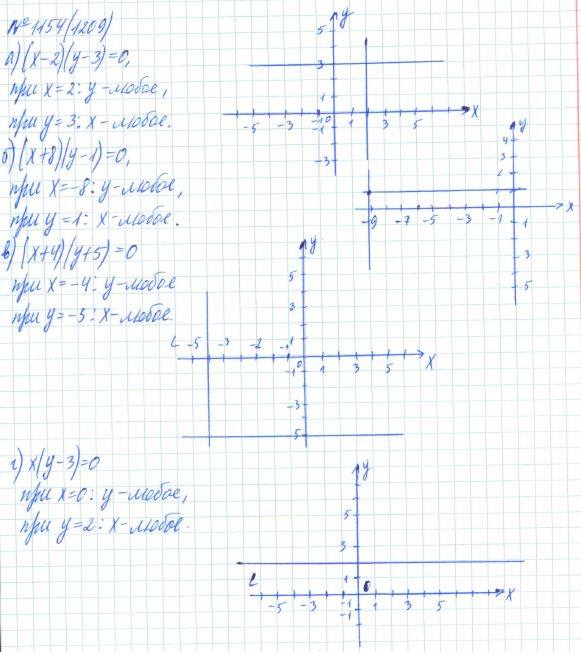 № 1154(1209)
а) (x-2)(y-3)=0,
при x=2: y-любое,
при y=3: x-любое.
б) (x+8)(y-1)=0,
при x=-8: y-любое,
при y=1: x-любое.
в) (x+4)(y+5)=0
при x=-4: y-любое
при y=-5: x-любое.
г) x(y-3)=0
при x=0: y-любое,
при y=2: x-любое.
y
5
3
1
-5 -3 -1 0 1 3 5 x
-1
-3
y
4
3
1
-9 -7 -5 -3 -1 x
1
3
5
y
5
3
1
-5 -3 -2 -1 0 1 3 5 x
-1
-3
5
y
5
3
1
-5 -3 -1 1 3 5 x
-1